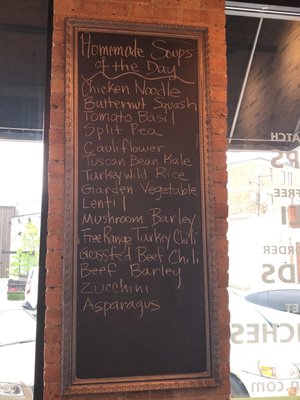 Homemade Soups
of the Day
Chicken Noodle
Butternut Squash
Tomato Basil
Split Pea
Cauliflower
Tuscan Bean Kale
Turkey Wild Rice
Garden Vegetable
Lentil
Mushroom Barley
Free Range Turkey Chili
Grassfed Beef Chili
Beef Barley
Zocchini
Asparagus